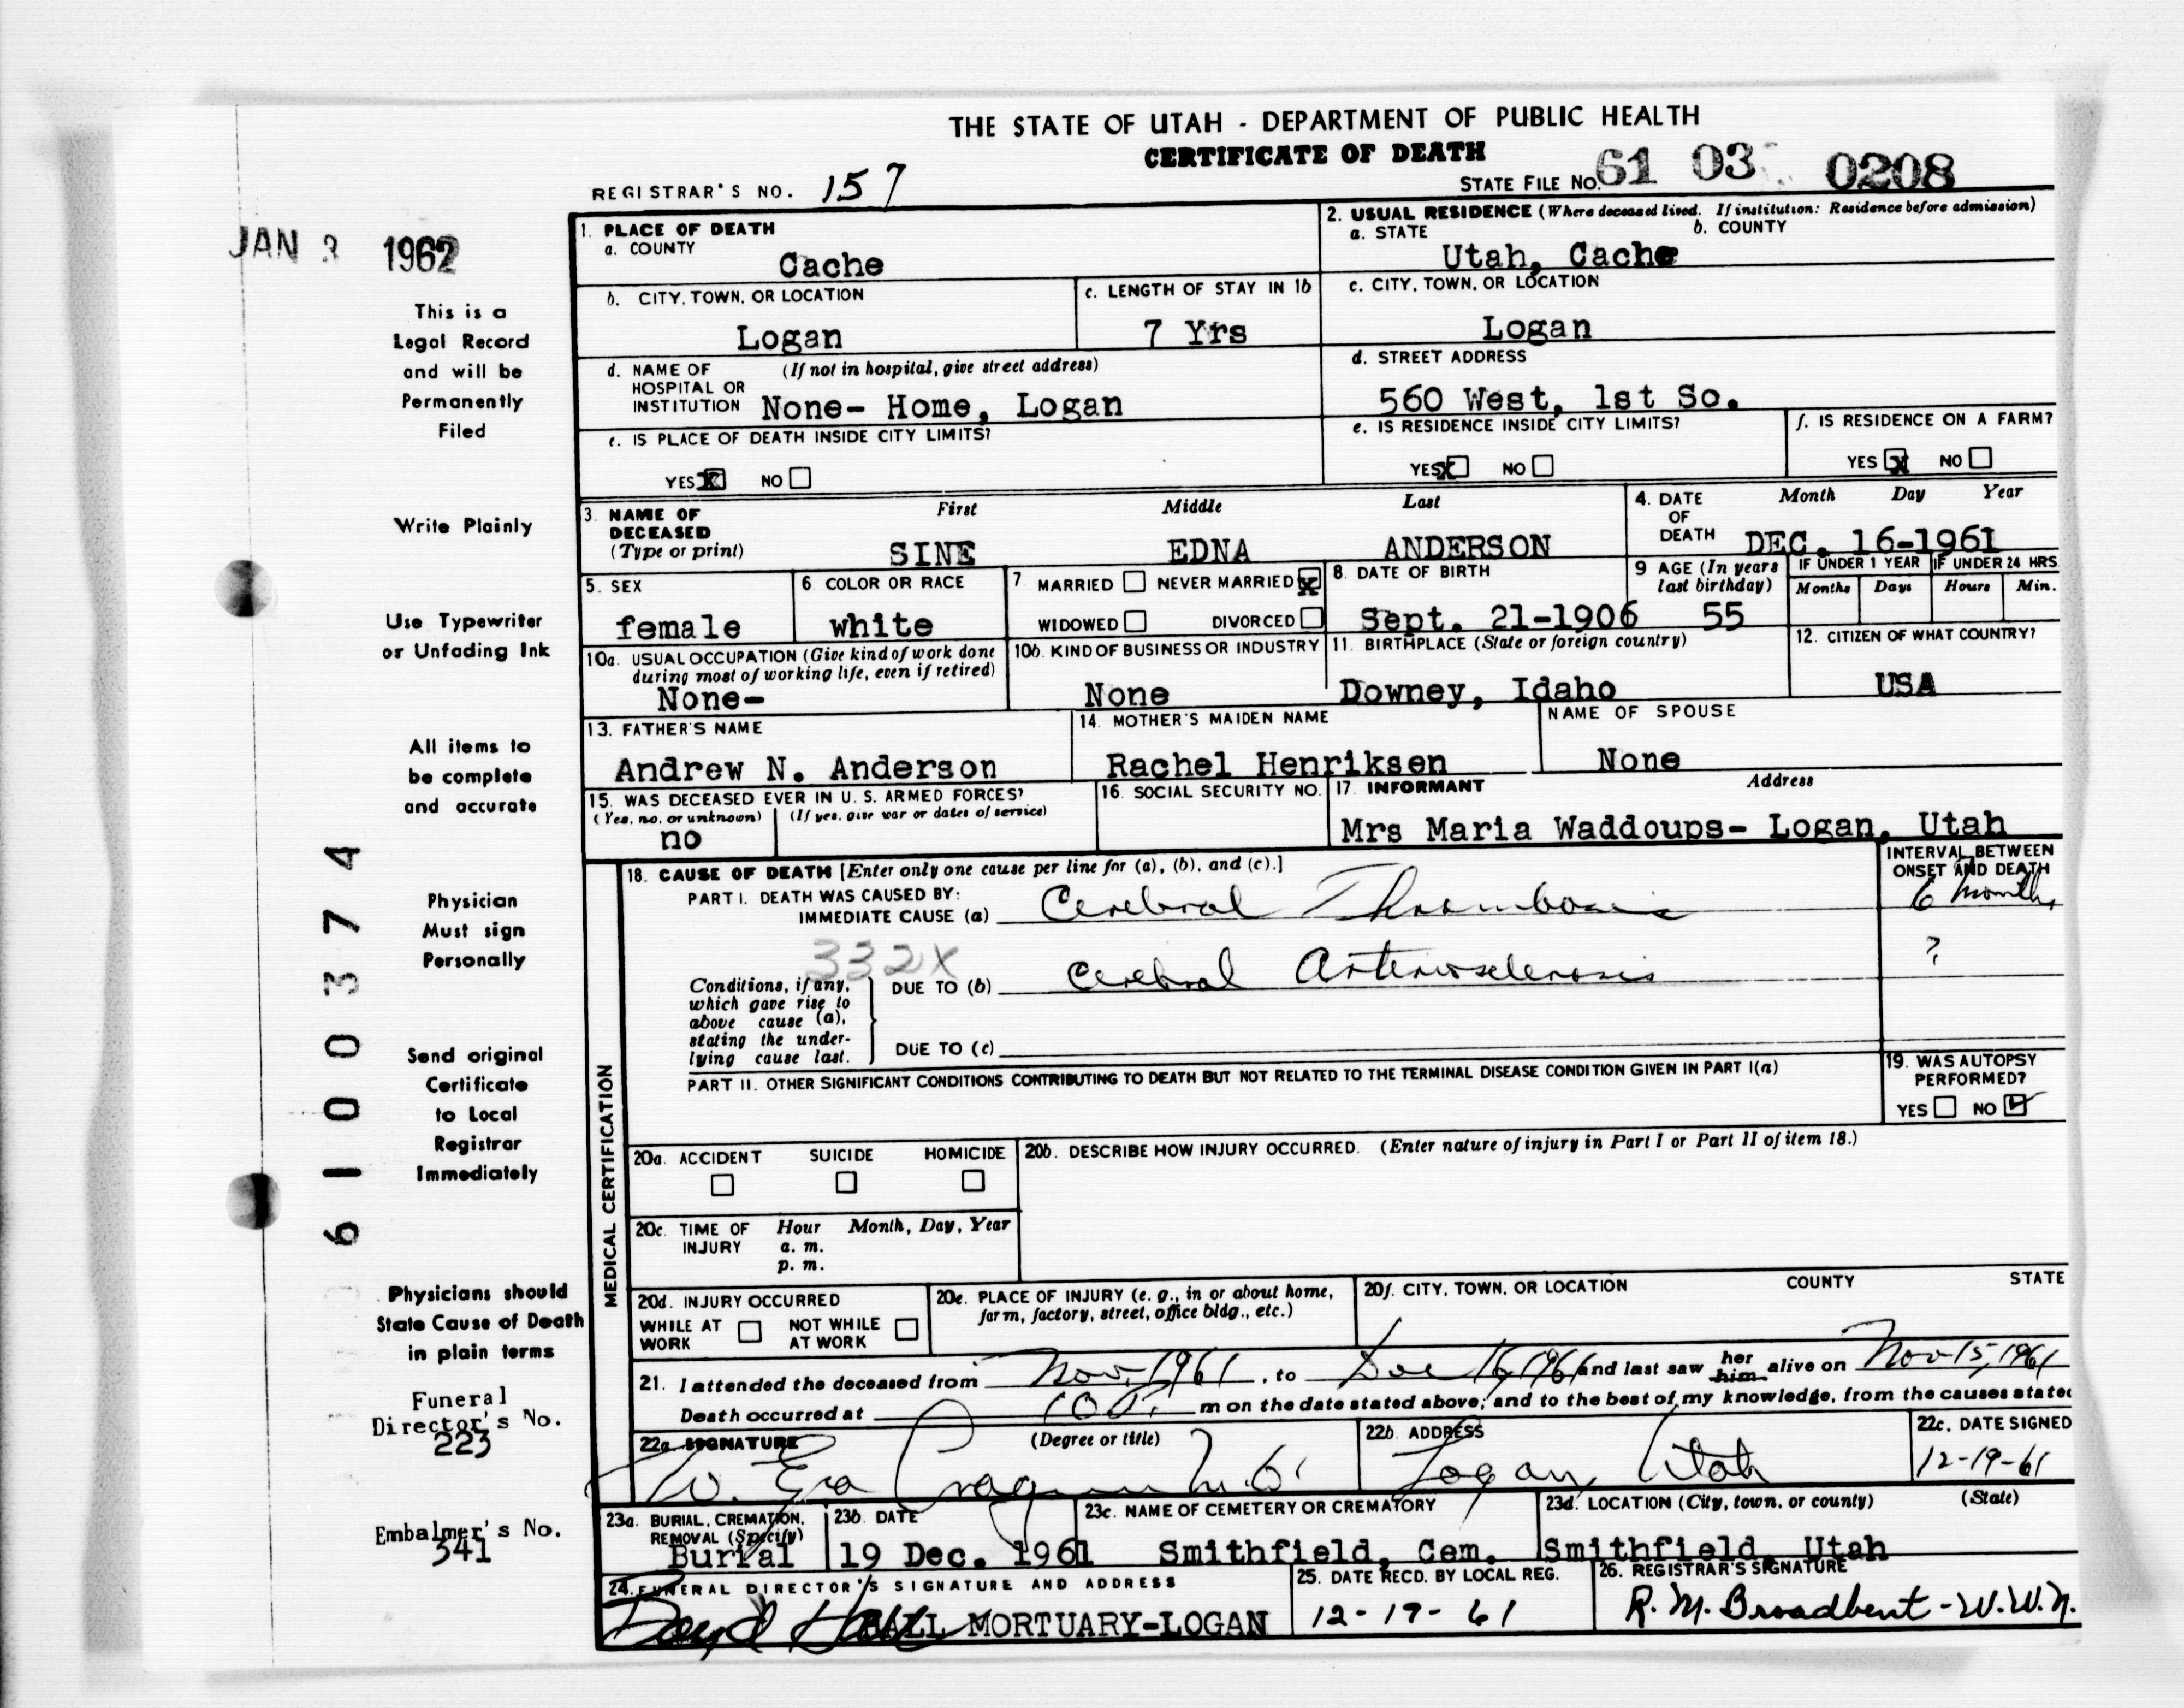 THE STATE OF UTAH - DEPARTMENT OF PUBLIC HEALTH
CERTIFICATE OF DEATH
REGISTRAR'S NO. 157
STATE FILE NO. 61 03 0208
JAN 3 1962
This is a
Legal Record
and will be
Permanently
Filed
Write Plainly
Use Typewriter
or Unfading Ink
All items to
be complete
and accurate
Physician
Must sign
Personally
Send original
Certificate
to Local
Registrar
Immediately
Physicians should
State Cause of Death
in plain terms
Funeral
Director's No.
223
Embalmer's No.
341
6100374
1. PLACE OF DEATH
a. COUNTY
Cache
2. USUAL RESIDENCE (Where deceased lived. If institution: Residence before admission)
a. STATE b. COUNTY
Utah, Cache
b. CITY, TOWN, OR LOCATION
Logan
c. LENGTH OF STAY IN 1b
7 Yrs
c. CITY, TOWN, OR LOCATION
Logan
d. NAME OF (If not in hospital, give street address)
HOSPITAL OR
INSTITUTION None- Home, Logan
d. STREET ADDRESS
560 West, 1st So.
e. IS PLACE OF DEATH INSIDE CITY LIMITS?
YES x NO
e. IS RESIDENCE INSIDE CITY LIMITS?
YES x NO
f. IS RESIDENCE ON A FARM?
YES x NO
3. NAME OF
DECEASED
(Type or print)
First Middle Last
SINE EDNA ANDERSON
4. DATE
OF
DEATH
Month Day Year
DEC. 16-1961
5. SEX
female
6. COLOR OR RACE
white
7. MARRIED NEVER MARRIED x
WIDOWED DIVORCED
8. DATE OF BIRTH
Sept. 21-1906
9 AGE (In years
last birthday)
55
IF UNDER 1 YEAR IF UNDER 24 HRS
Months Days Hours Min.
10a. USUAL OCCUPATION (Give kind of work done
during most of working life, even if retired)
None-
10b. KIND OF BUSINESS OR INDUSTRY
None
11. BIRTHPLACE (State or foreign country)
Downey, Idaho
12. CITIZEN OF WHAT COUNTRY?
USA
13. FATHER'S NAME
Andrew N. Anderson
14. MOTHER'S MAIDEN NAME
Rachel Henriksen
NAME OF SPOUSE
None
15. WAS DECEASED EVER IN U. S. ARMED FORCES?
(Yes, no, or unknown) (If yes, give war or dates of service)
no
16. SOCIAL SECURITY NO.
17. INFORMANT Address
Mrs Maria Waddoups- Logan, Utah
MEDICAL CERTIFICATION
18. CAUSE OF DEATH [Enter only one cause per line for (a), (b), and (c).]
INTERVAL BETWEEN
ONSET AND DEATH
PART I. DEATH WAS CAUSED BY:
IMMEDIATE CAUSE (a) Cerebral Thrombosis 6 months
332X
Conditions, if any,
which gave rise to
above cause (a),
stating the under-
lying cause last.
DUE TO (b) Cerebral Arteriosclerosis ?
DUE TO (c)
PART II. OTHER SIGNIFICANT CONDITIONS CONTRIBUTING TO DEATH BUT NOT RELATED TO THE TERMINAL DISEASE CONDITION GIVEN IN PART I(a)
19. WAS AUTOPSY
PERFORMED?
YES NO ✓
20a. ACCIDENT SUICIDE HOMICIDE
20b. DESCRIBE HOW INJURY OCCURRED. (Enter nature of injury in Part I or Part II of item 18.)
20c. TIME OF Hour Month, Day, Year
INJURY a. m.
p. m.
20d. INJURY OCCURRED
WHILE AT NOT WHILE
WORK AT WORK
20e. PLACE OF INJURY (e. g., in or about home,
farm, factory, street, office bldg., etc.)
20f. CITY, TOWN, OR LOCATION COUNTY STATE
21. I attended the deceased from Nov, 1961, to Dec 16, 1961 and last saw her him alive on Nov 15, 1961
Death occurred at m on the date stated above; and to the best of my knowledge, from the causes stated
22a. SIGNATURE (Degree or title)
W. Ezra Cragun M.D.
22b. ADDRESS
Logan, Utah
22c. DATE SIGNED
12-19-61
23a. BURIAL, CREMATION,
REMOVAL (Specify)
Burial
23b. DATE
19 Dec. 1961
23c. NAME OF CEMETERY OR CREMATORY
Smithfield, Cem.
23d. LOCATION (City, town, or county) (State)
Smithfield, Utah
24. FUNERAL DIRECTOR'S SIGNATURE AND ADDRESS
Boyd Hall HALL MORTUARY-LOGAN
25. DATE RECD. BY LOCAL REG.
12-19-61
26. REGISTRAR'S SIGNATURE
R. M. Broadbent - W.W.N.